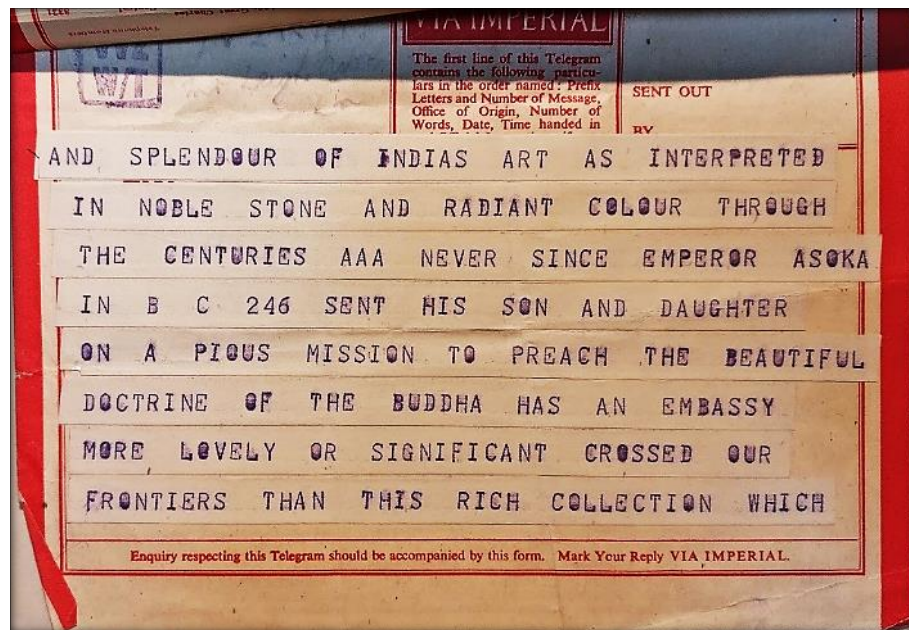 VIA IMPERIAL
The first line of this Telegram
contains the following particu-
lars in the order named: Prefix
Letters and Number of Message,
Office of Origin, Number of
Words, Date, Time handed in
SENT OUT
BY
W/T
AND SPLENDOUR OF INDIAS ART AS INTERPRETED
IN NOBLE STONE AND RADIANT COLOUR THROUGH
THE CENTURIES AAA NEVER SINCE EMPEROR ASOKA
IN B C 246 SENT HIS SON AND DAUGHTER
ON A PIOUS MISSION TO PREACH THE BEAUTIFUL
DOCTRINE OF THE BUDDHA HAS AN EMBASSY
MORE LOVELY OR SIGNIFICANT CROSSED OUR
FRONTIERS THAN THIS RICH COLLECTION WHICH
Enquiry respecting this Telegram should be accompanied by this form. Mark Your Reply VIA IMPERIAL.